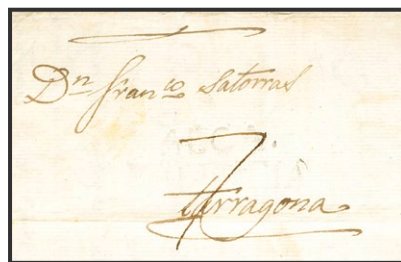 Dn Franco Satorras
7
Tarragona